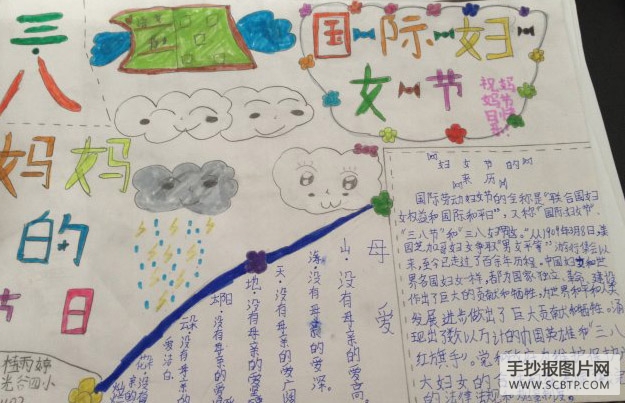 三·八
妈妈
的
节日
国际妇
女节
祝妈
妈节
日
妇女节的
来历
国际劳动妇女节的全称是“联合国妇
女权益和国际和平日”，又称“国际妇女节”、
“三八节”和“三八妇女节”。从1909年3月8日，美
国芝加哥妇女争取“男女平等”游行集会以
来，至今已走过了百余年历程。中国妇女和世
界各国妇女一样，都为国家独立、革命、建设
作出了巨大的贡献和牺牲，为世界和平和人类
发展进步做出了巨大贡献和牺牲。涌
现出了数以万计的巾国英雄和“三八
红旗手”。党和
大妇女的
的法律法规
母爱
山·没有母亲的爱高。
海·没有母亲的爱深。
天·没有母亲的爱广阔
地·没有母亲的爱
太阳·没有母亲的爱
云朵·没有母亲的
爱洁白
花·没有
桂雨婷
光谷四小
手抄报图片网
WWW.SCBTP.COM